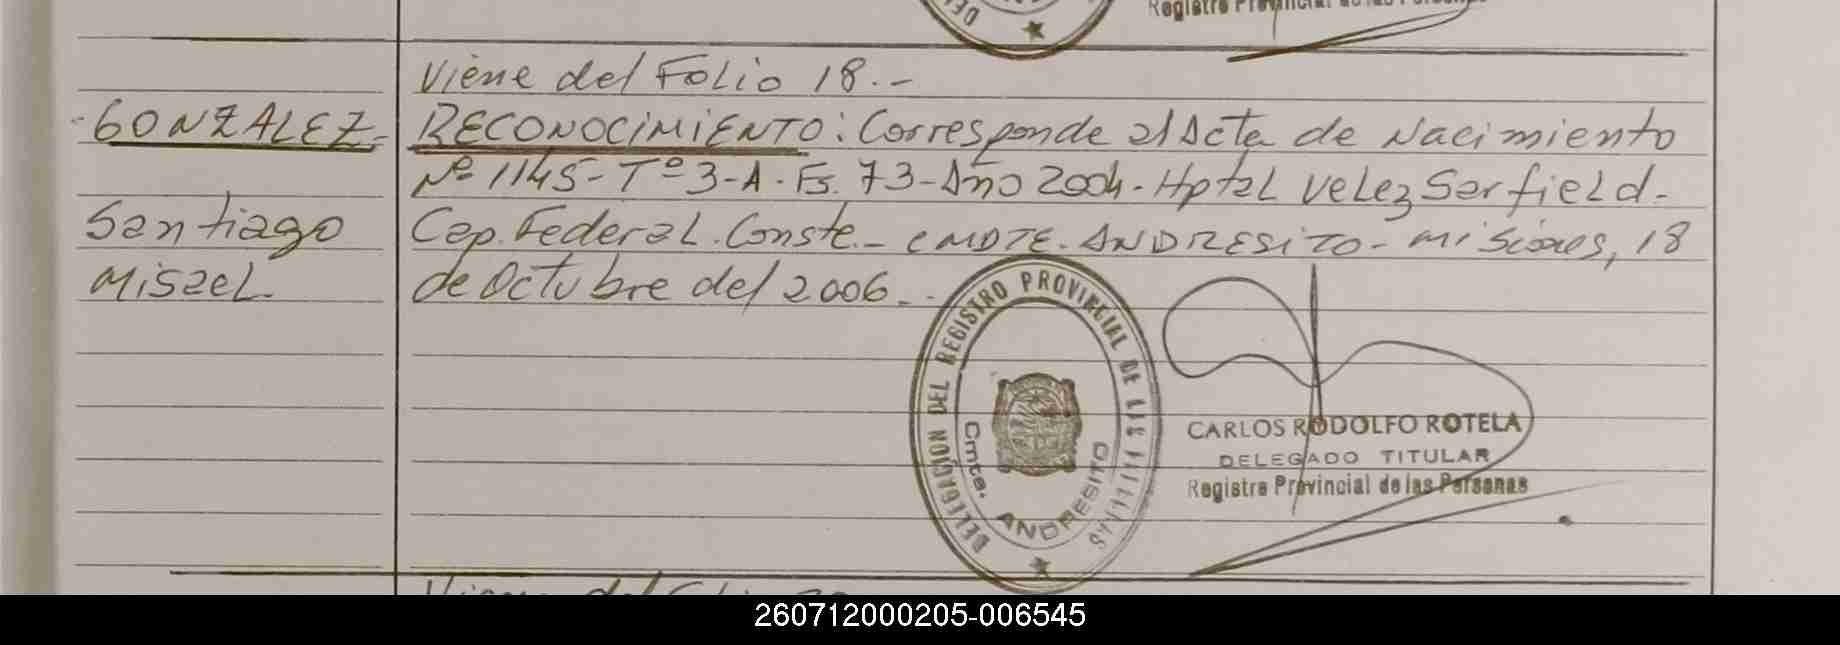 Registro Provincial de las Personas
Viene del Folio 18.-
GONZALEZ.
RECONOCIMIENTO: Corresponde al Acta de Nacimiento
Nº 1145-Tº3-A-Fs. 73-Año 2004-Hptal Velez Sarfield-
Santiago
Cap. Federal. Conste.- CMDTE. ANDRESITO - Misiones, 18
Misael
de Octubre del 2006.-
DELEGACION DEL REGISTRO PROVINCIAL DE LAS PERSONAS
Cmte. ANDRESITO
CARLOS RODOLFO ROTELA
DELEGADO TITULAR
Registro Provincial de las Personas
Viene del
260712000205-006545